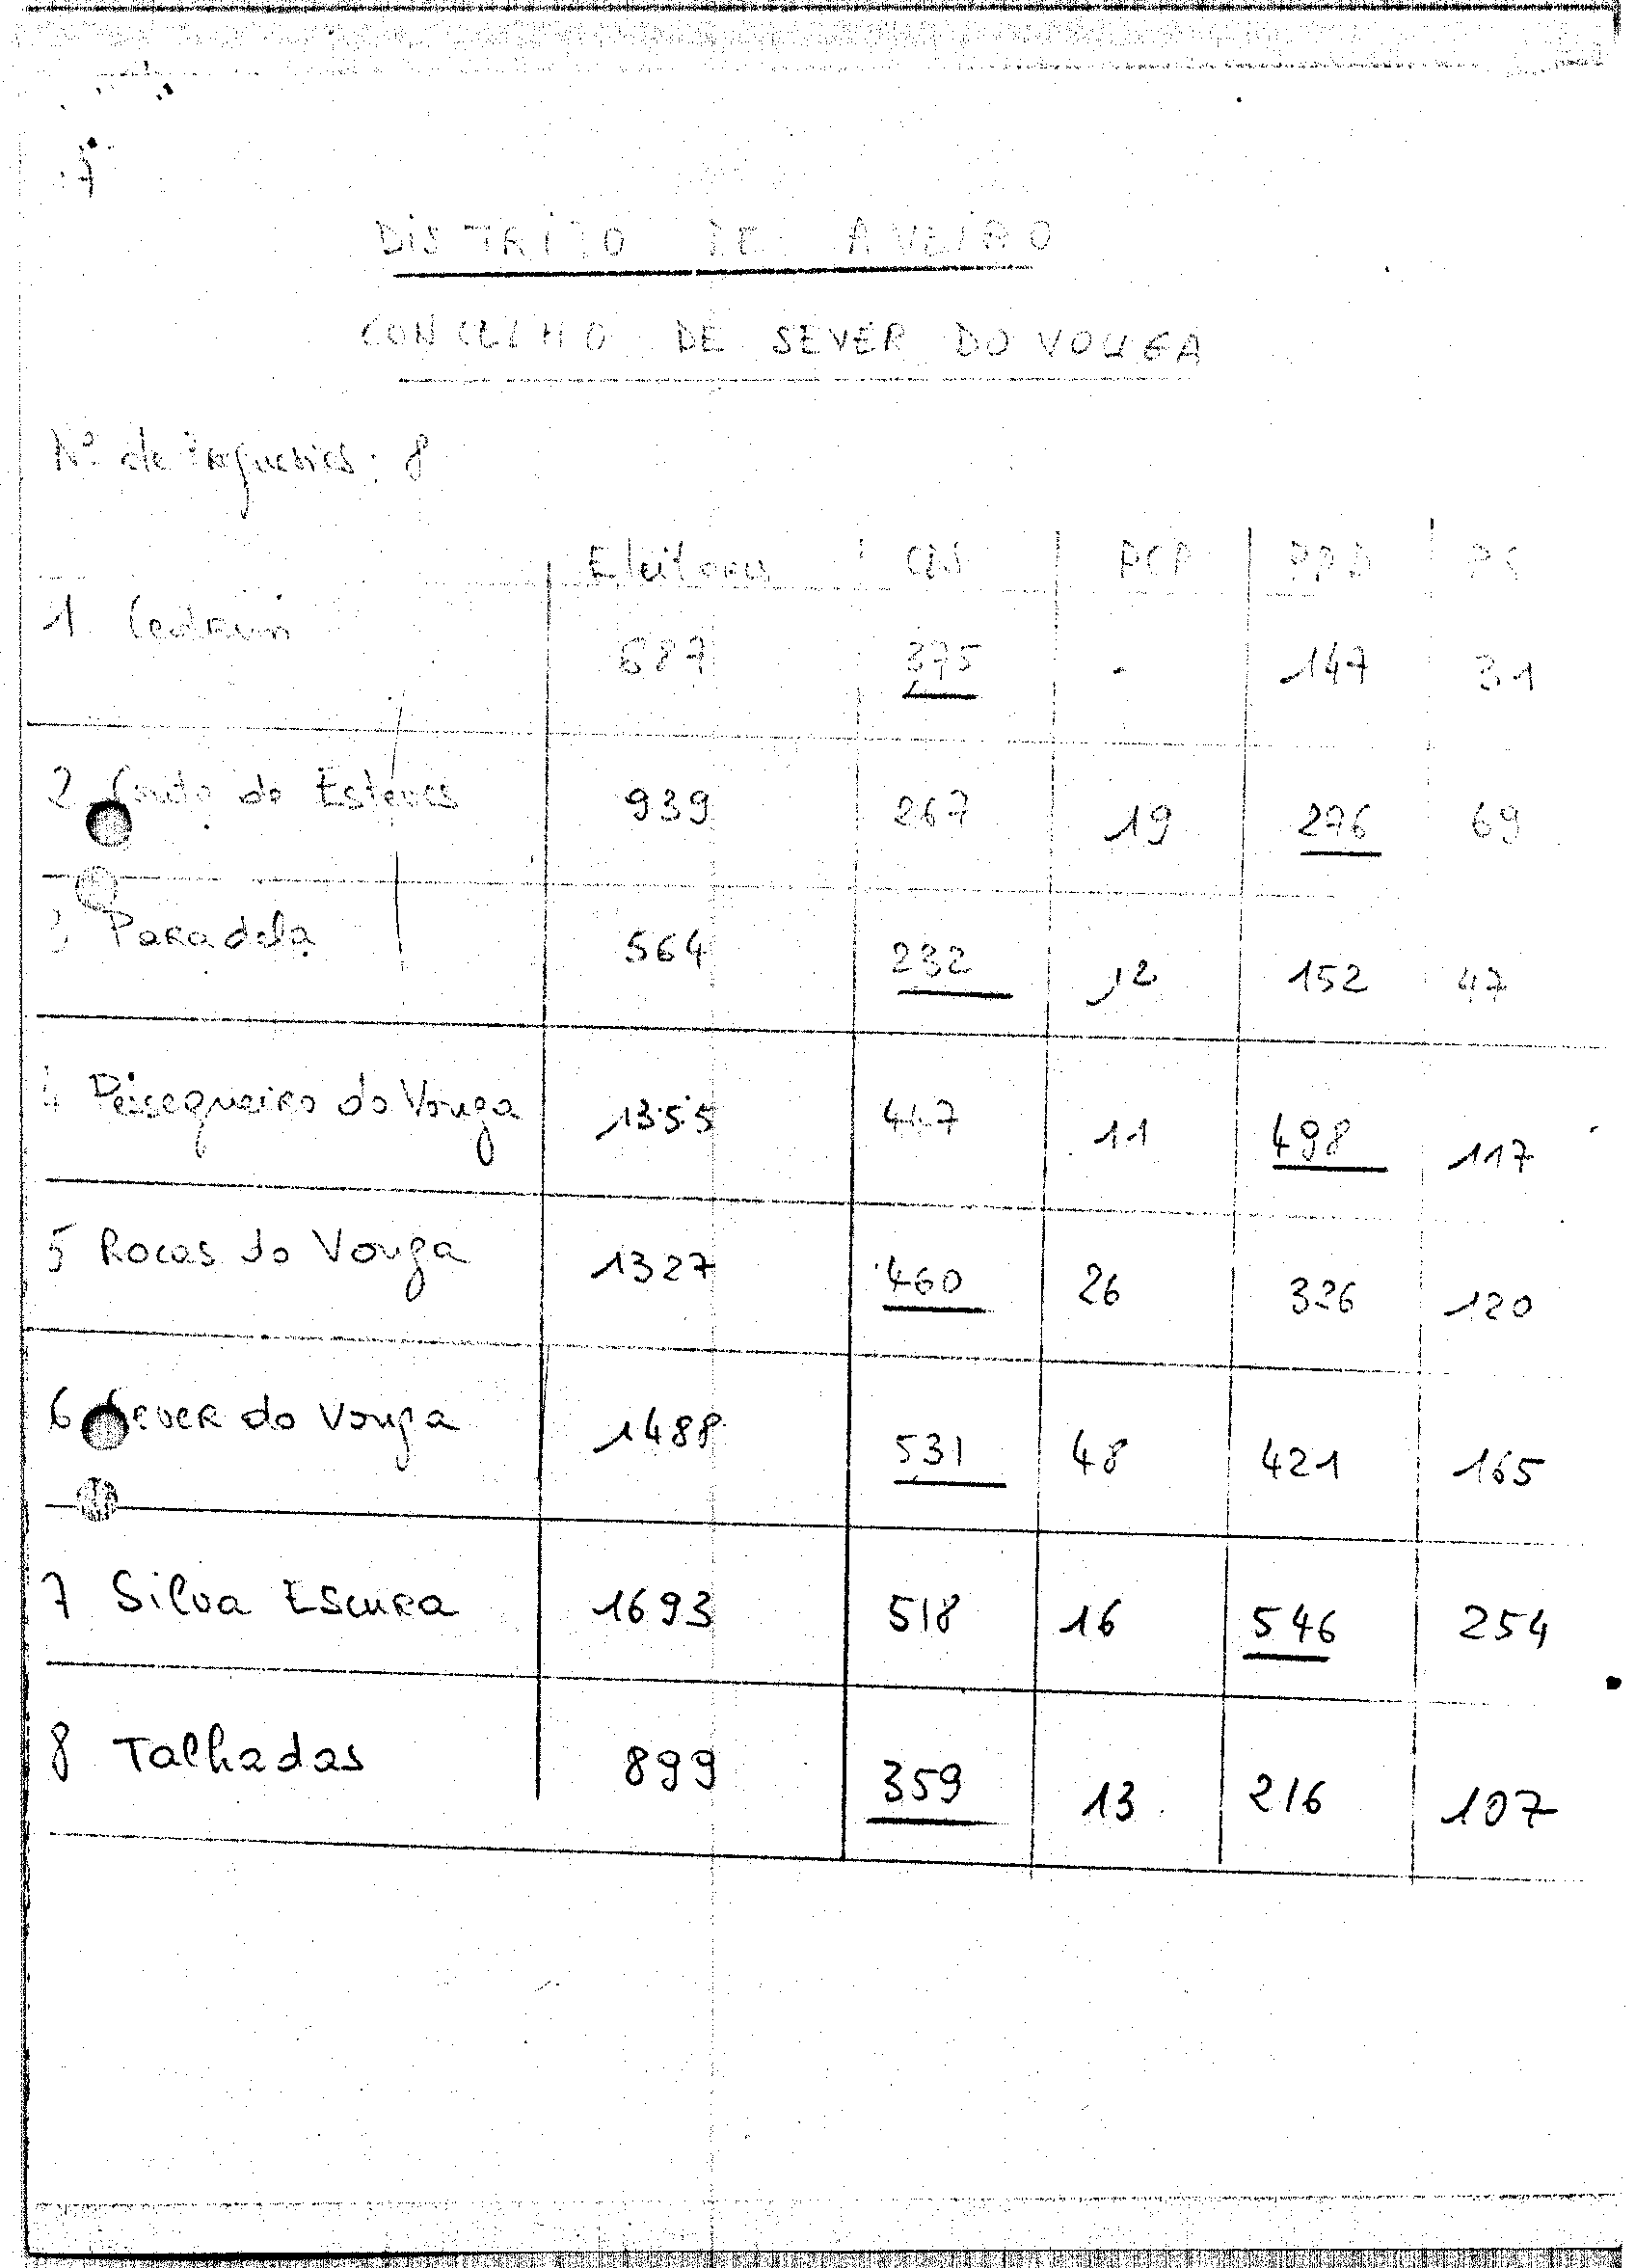 7
DISTRITO DE AVEIRO
CONCELHO DE SEVER DO VOUGA
Nº de Freguesias: 8
Eleitores CDS PCP PPD PS
1 Cedrim 687 375 - 147 31
2 Couto de Esteves 939 267 19 276 69
3 Paradela 564 232 12 152 47
4 Pessegueiro do Vouga 1355 447 11 498 117
5 Rocas do Vouga 1327 460 26 326 120
6 Sever do Vouga 1488 531 48 421 165
7 Silva Escura 1693 518 16 546 254
8 Talhadas 899 359 13 216 107